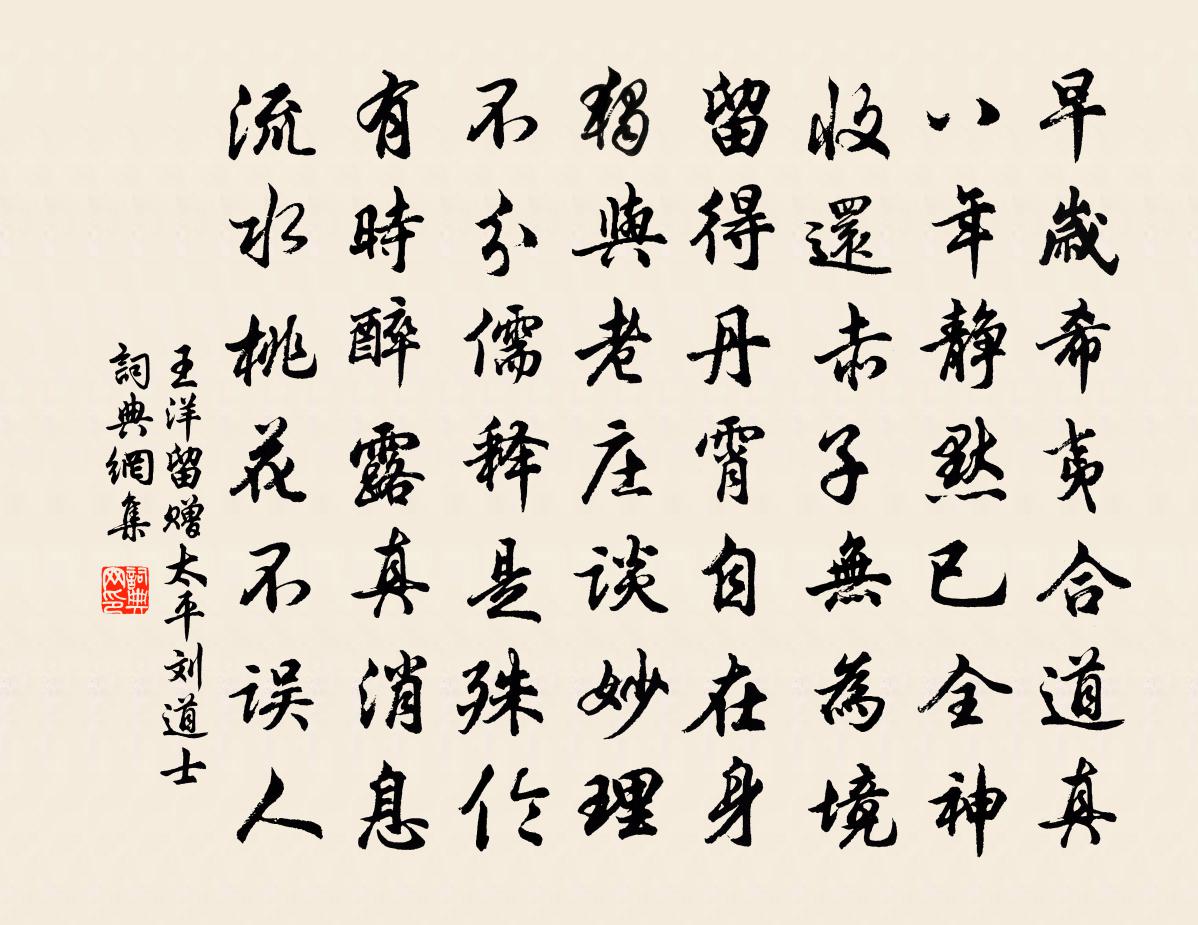 早歲希夷合道真
八年静默已全神
收還赤子無為境
留得丹霄自在身
獨與老庄談妙理
不分儒释是殊伦
有時醉露真消息
流水桃花不误人
王洋留赠太平刘道士
詞典網集
詞典网印